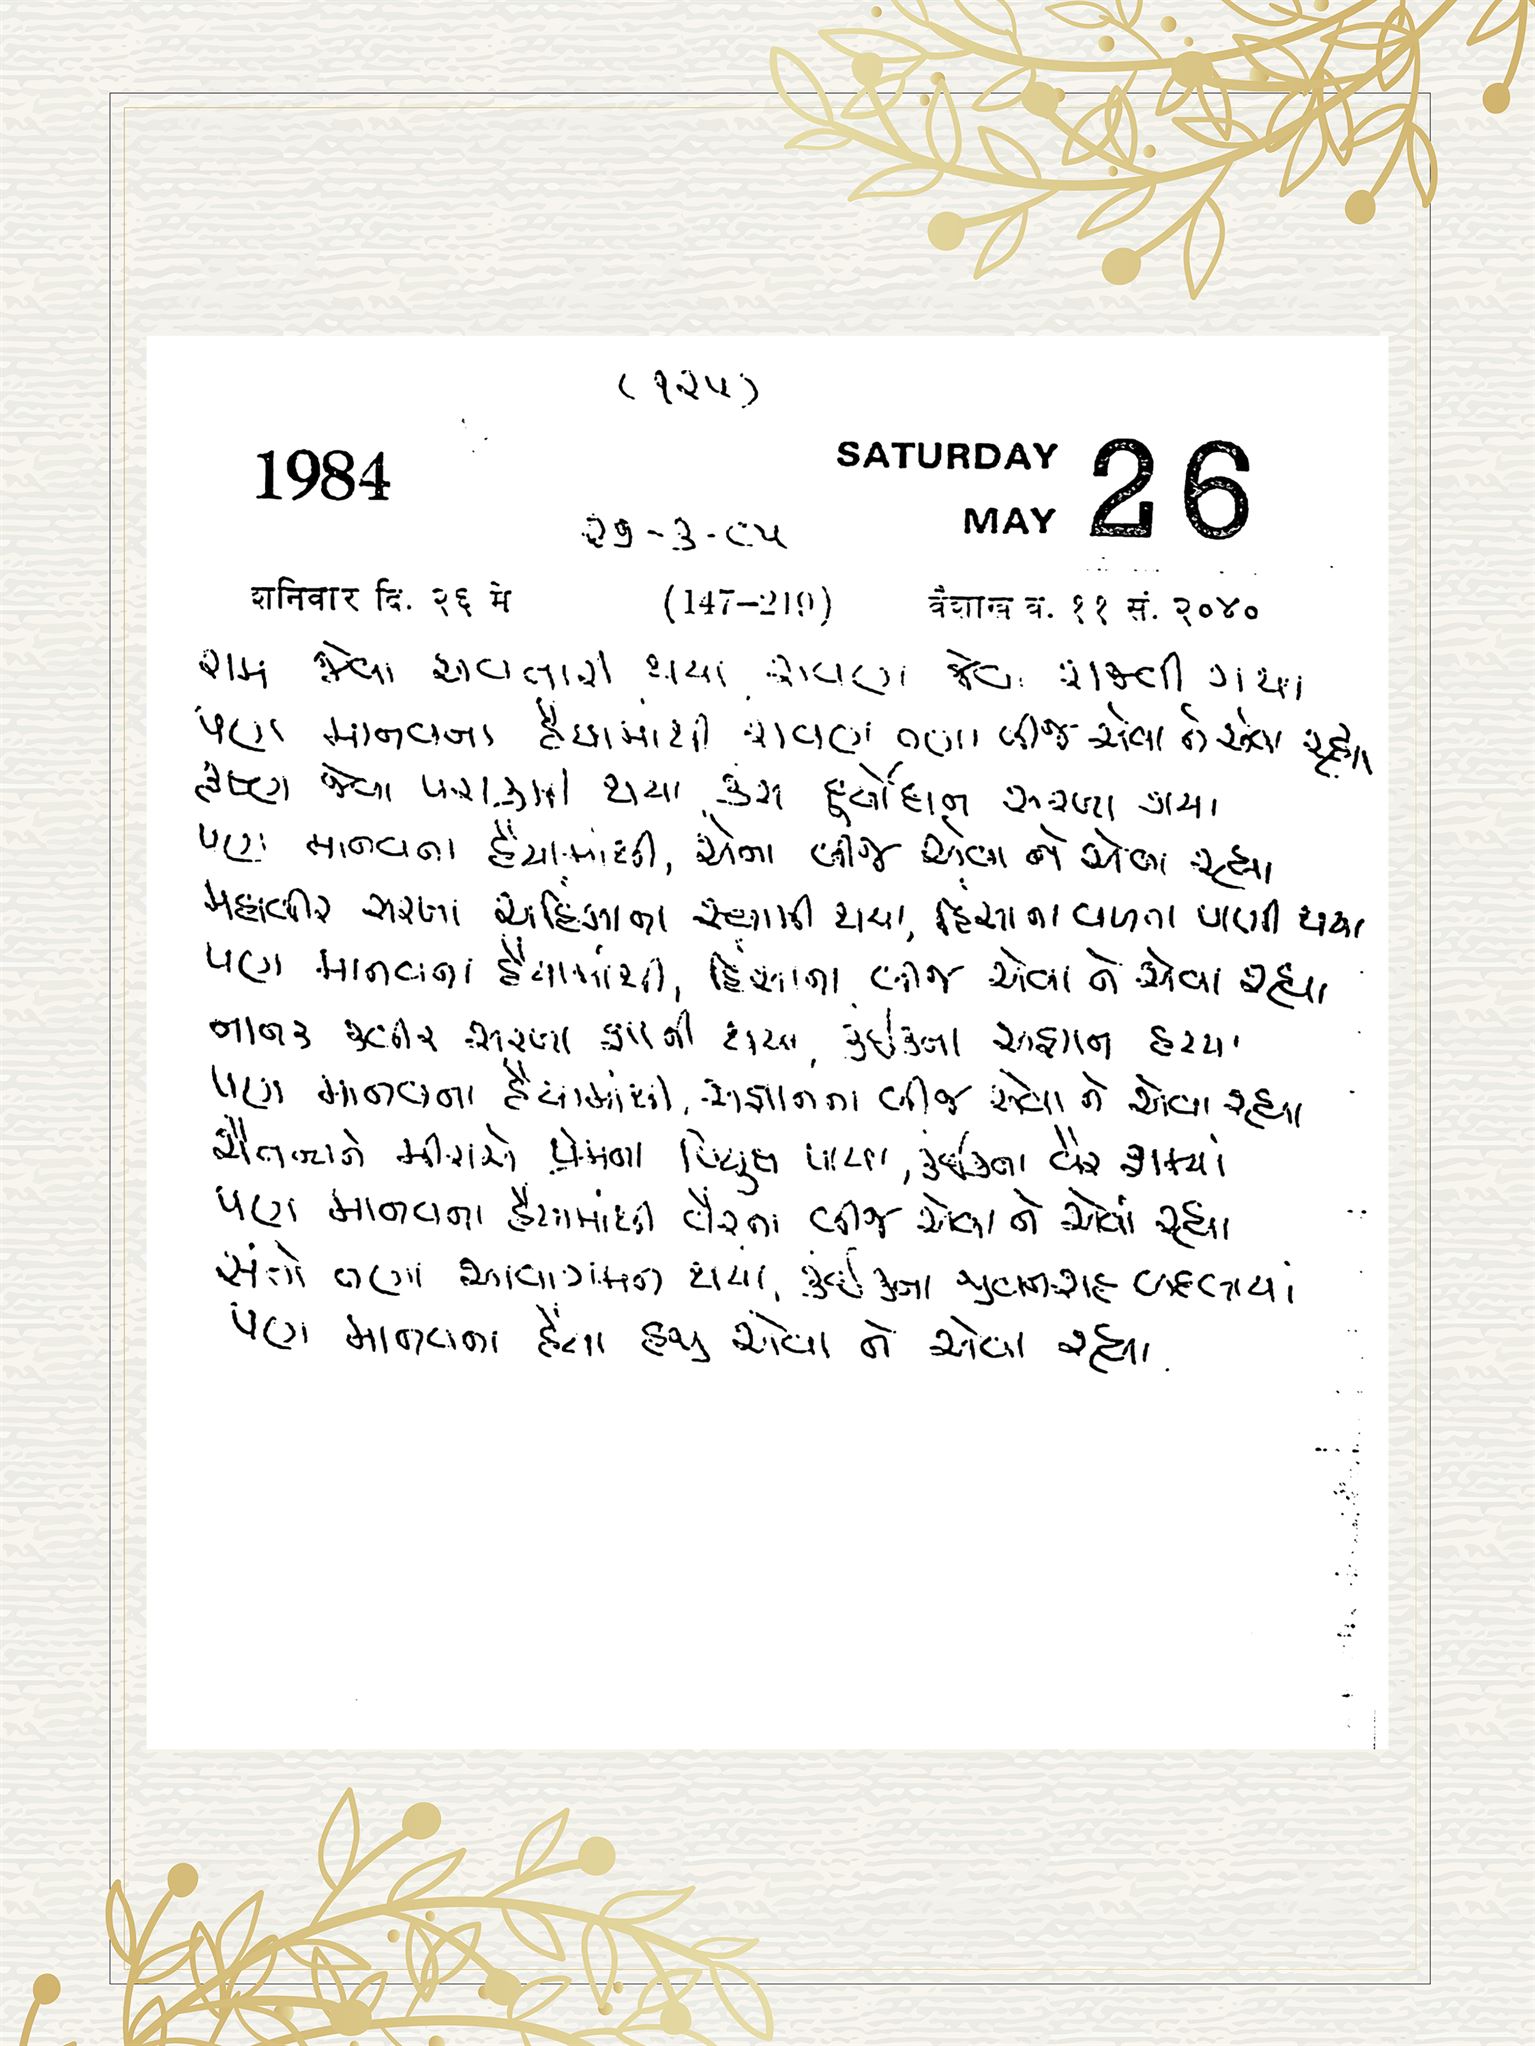 (૧૨૫)
1984
SATURDAY 26
MAY
૨૧-૩-૮૫
शनिवार दि. २६ मे (147–219) वैशाख व. ११ सं. २०४०
રામ જેવા અવતારી થયા, રાવણ જેવા ગયા
પણ માનવના હૈયામાંથી રાવણ તણા બીજ એવા ને એવા રહ્યા
કૃષ્ણ જેવા પરાક્રમી થયા, કંસ દુર્યોધન સરખા ગયા
પણ માનવના હૈયામાંથી, એના બીજ એવા ને એવા રહ્યા
મહાવીર સરખા અહિંસાના સ્વામી થયા, હિંસાના વળતા પાણી થયા
પણ માનવના હૈયામાંથી, હિંસાના બીજ એવા ને એવા રહ્યા
નાનક કબીર સરખા જ્ઞાની થયા, કંઈકના અજ્ઞાન હટયા
પણ માનવના હૈયામાંથી, અજ્ઞાનના બીજ એવા ને એવા રહ્યા
ચૈતન્યને મીરાંએ પ્રેમના પિયુષ પાયા, કંઈકના વૈર શમ્યાં
પણ માનવના હૈયામાંથી વૈરના બીજ એવા ને એવા રહ્યા
સંતો તણા આવાગમન થયા, કંઈકના જીવનરાહ બદલાયાં
પણ માનવના હૈયા હજુ એવા ને એવા રહ્યા.